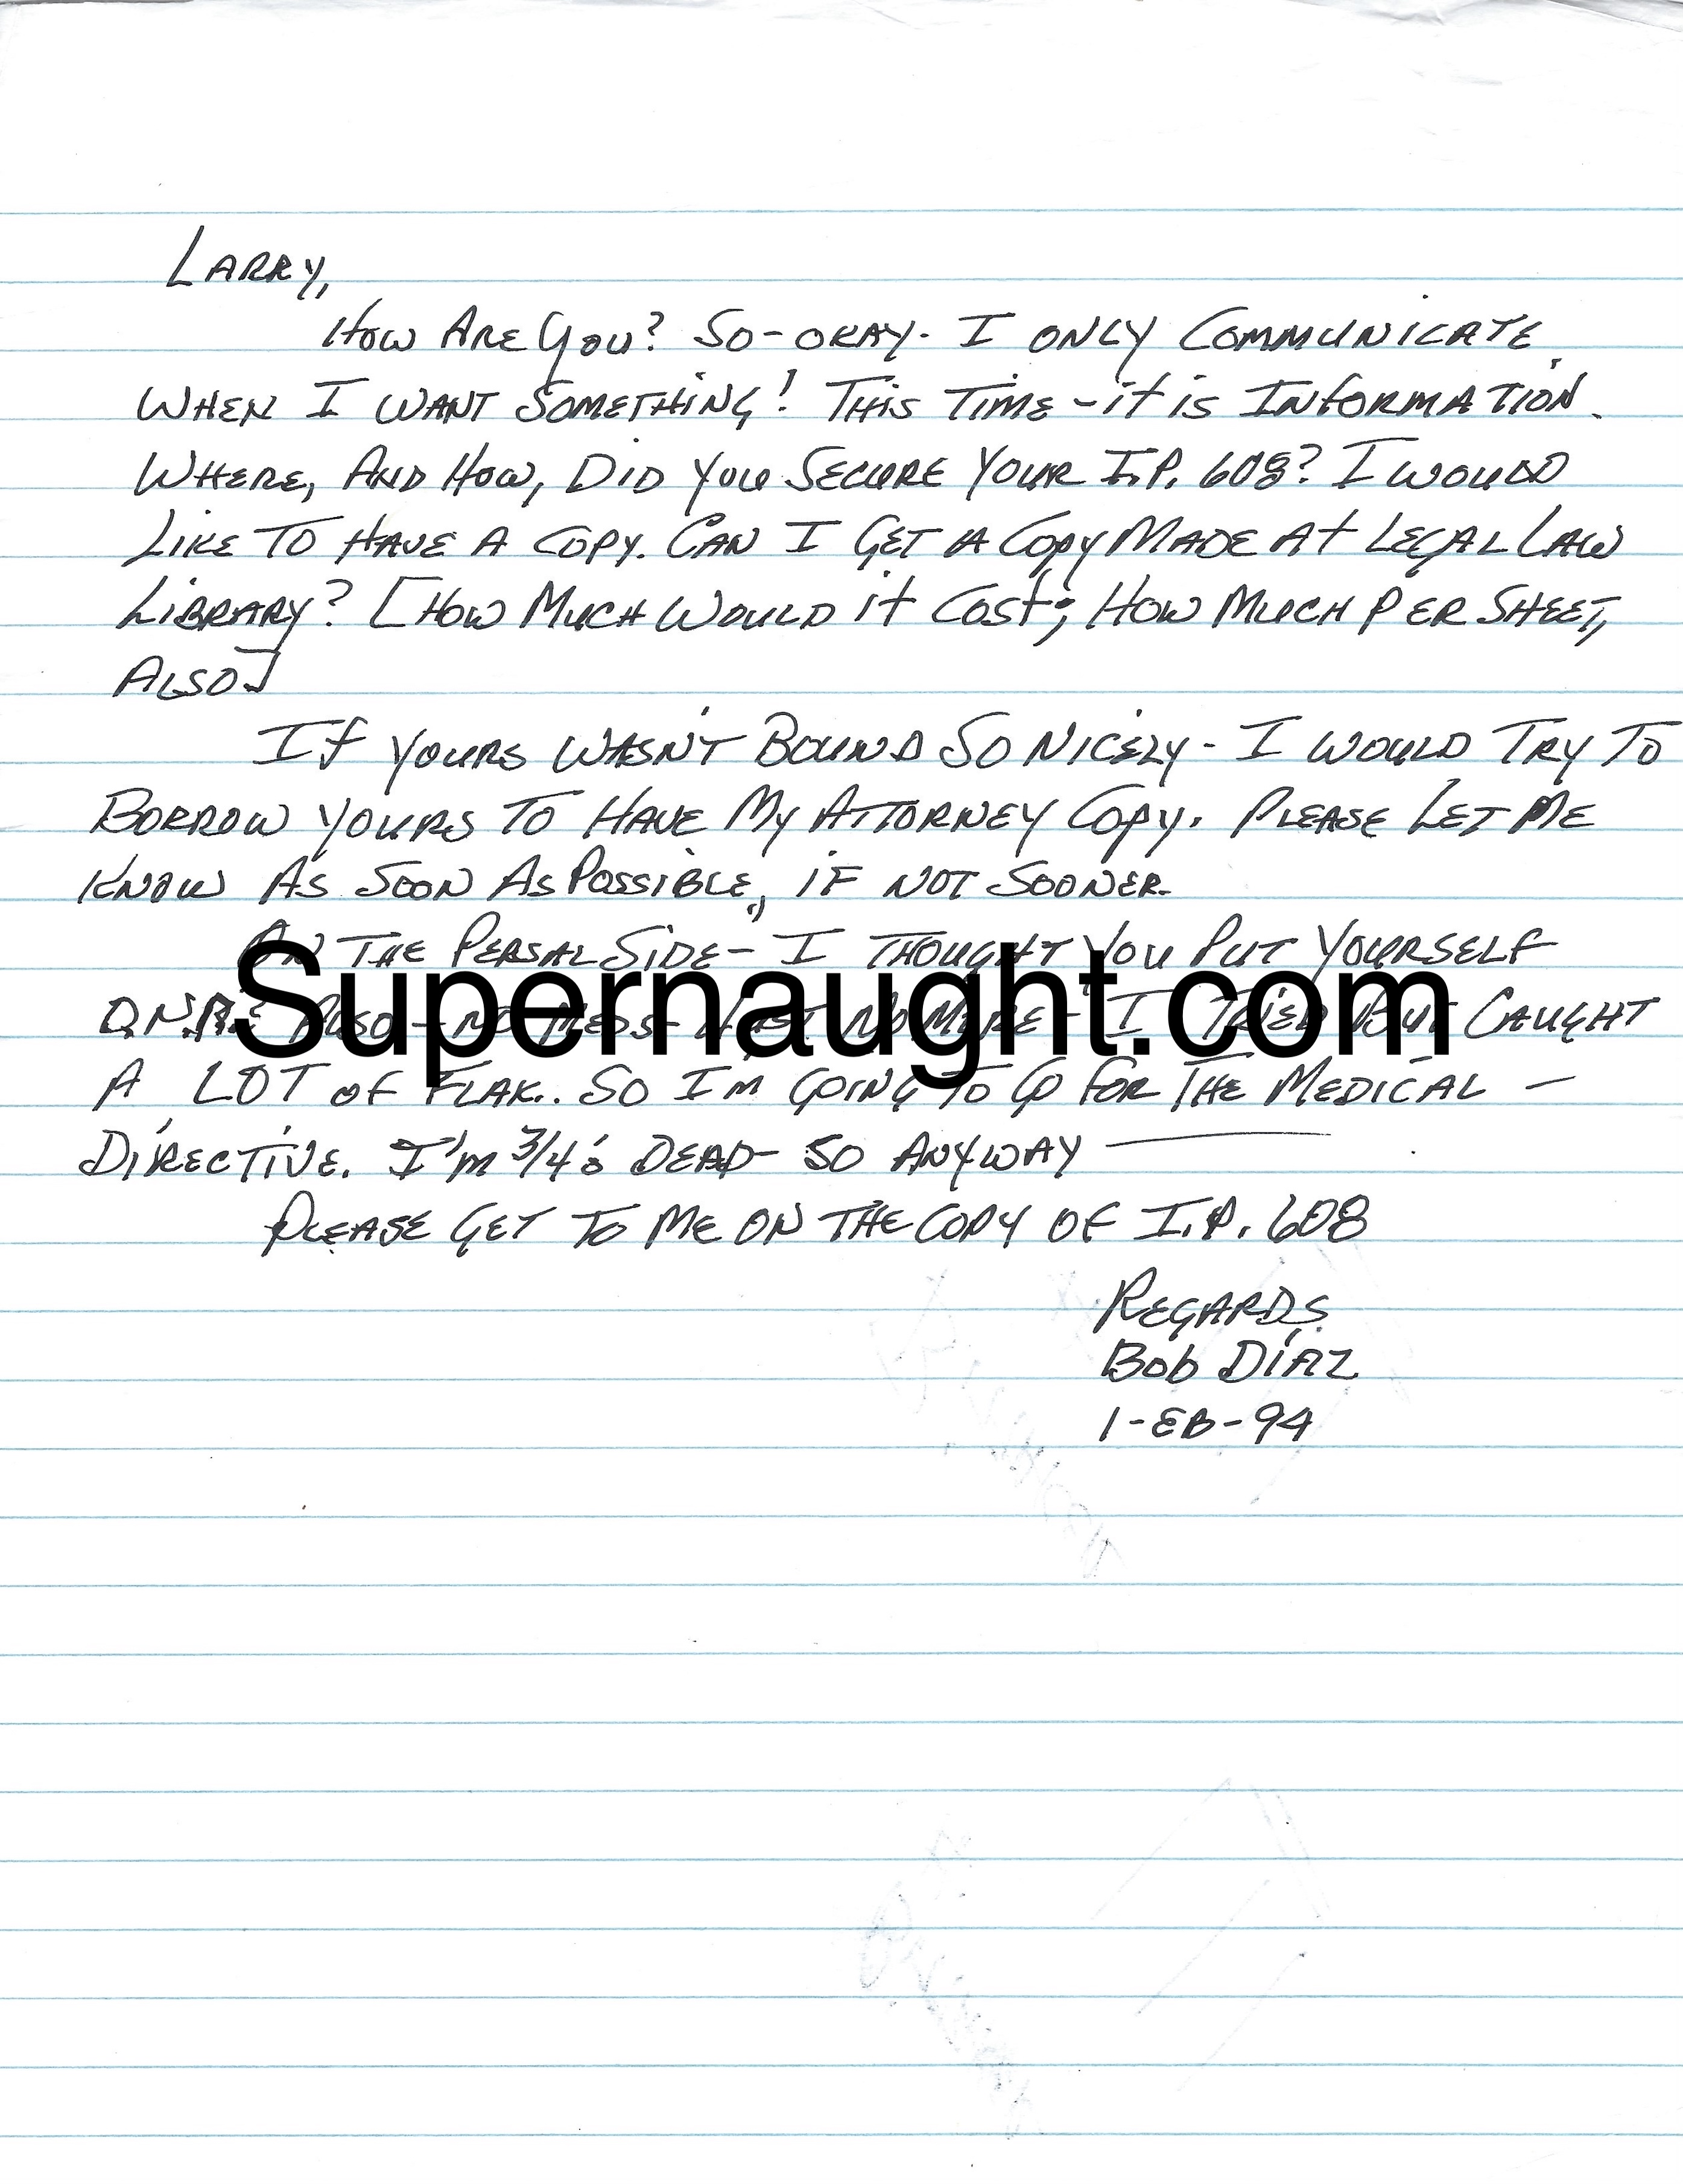 LARRY,
HOW ARE YOU? SO-OKAY. I ONLY COMMUNICATE
WHEN I WANT SOMETHING! THIS TIME - it is INFORMATION.
WHERE, AND HOW, DID YOU SECURE YOUR I.P. 608? I WOULD
LIKE TO HAVE A COPY. CAN I GET A COPY MADE At LEGAL LAW
LIBRARY? [HOW MUCH WOULD it COSt; HOW MUCH PER SHEET,
ALSO]
If YOURS WASN'T BOUND SO NICELY - I WOULD TRY TO
BORROW YOURS TO HAVE MY ATTORNEY COPY. PLEASE LET ME
KNOW AS SOON AS POSSIBLE, IF NOT SOONER.
THE PERSAL SIDE - I THOUGHT YOU PUT YOURSELF
Supernaught.com
ALSO - NO MEDS - NO MORE - I TRIED BUT CAUGHT
A LOT OF FLAK.. SO I'M GOING TO GO FOR THE MEDICAL -
DIRECTIVE. I'M 3/4's DEAD - SO ANYWAY —
PLEASE GET TO ME ON THE COPY OF I.P. 608
REGARDS,
Bob DIAZ
1-EB-94